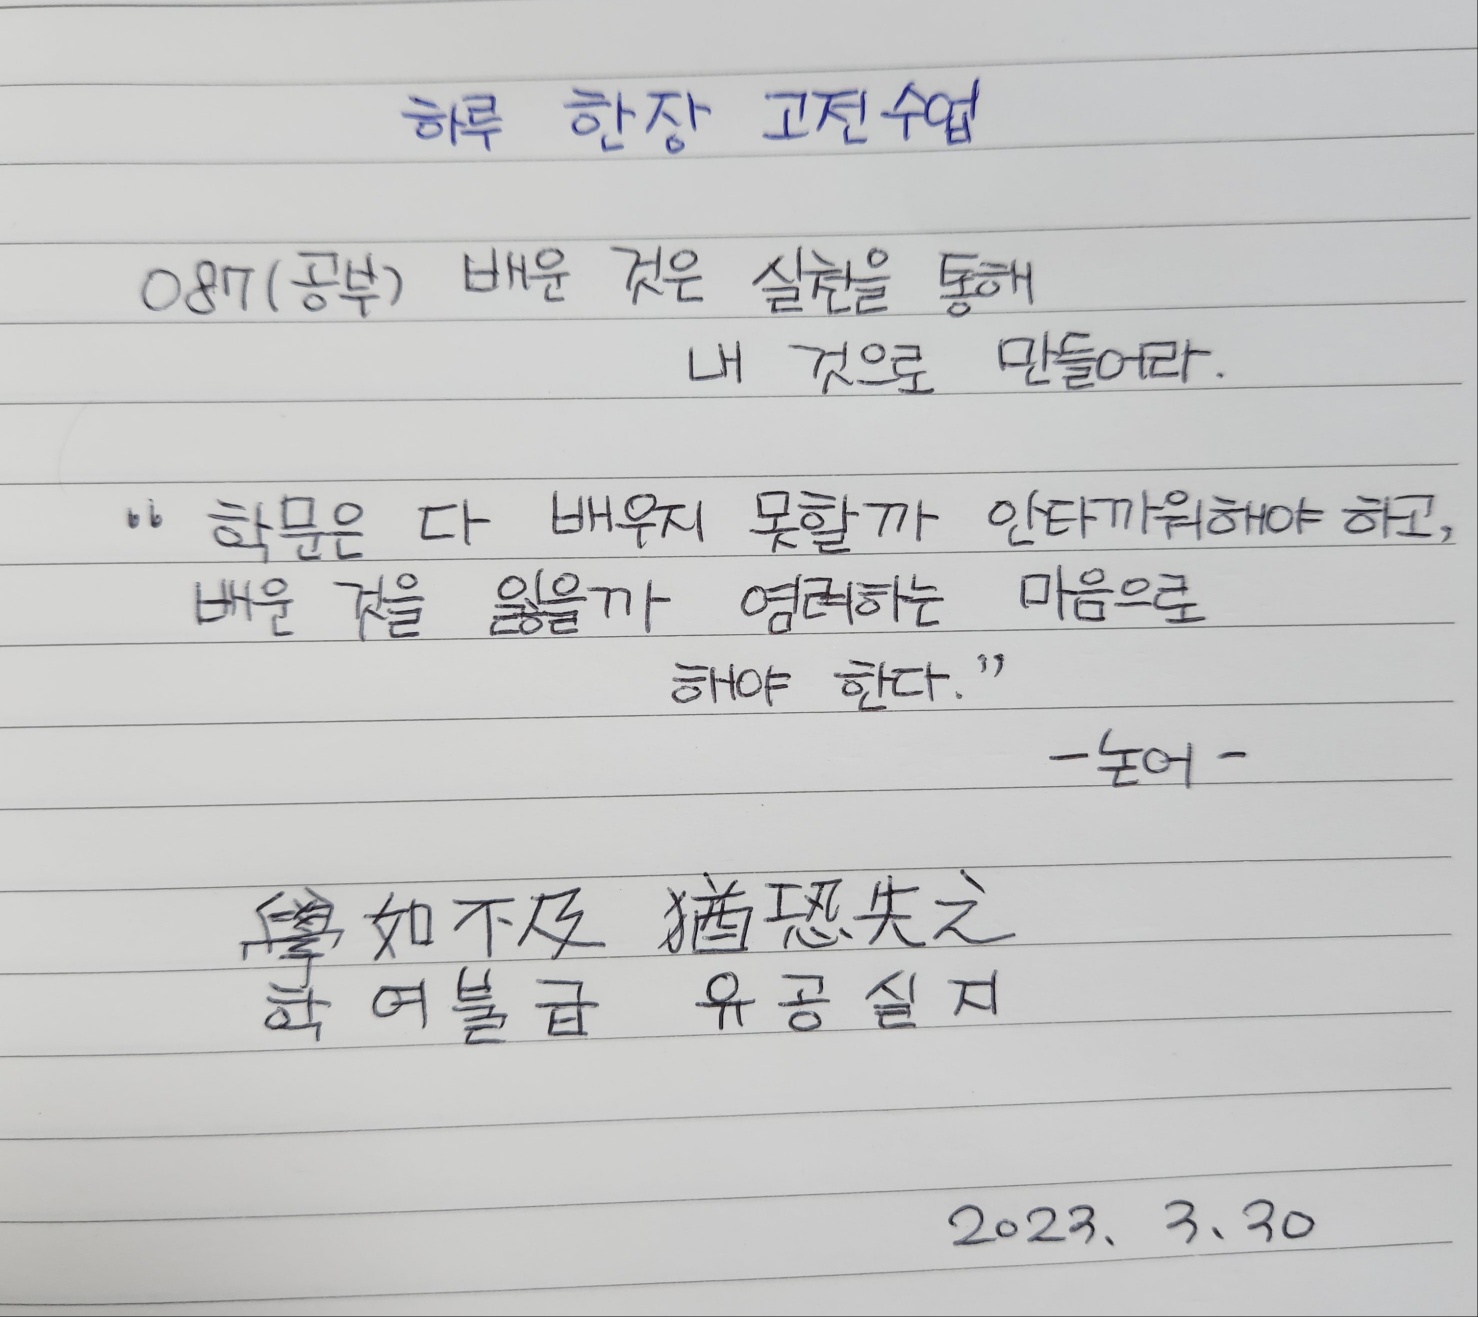 하루 한장 고전수업
087(공부) 배운 것은 실천을 통해
내 것으로 만들어라.
“학문은 다 배우지 못할까 안타까워해야 하고,
배운 것을 잃을까 염려하는 마음으로
해야 한다.”
-논어-
學如不及 猶恐失之
학여불급 유공실지
2023. 3. 30